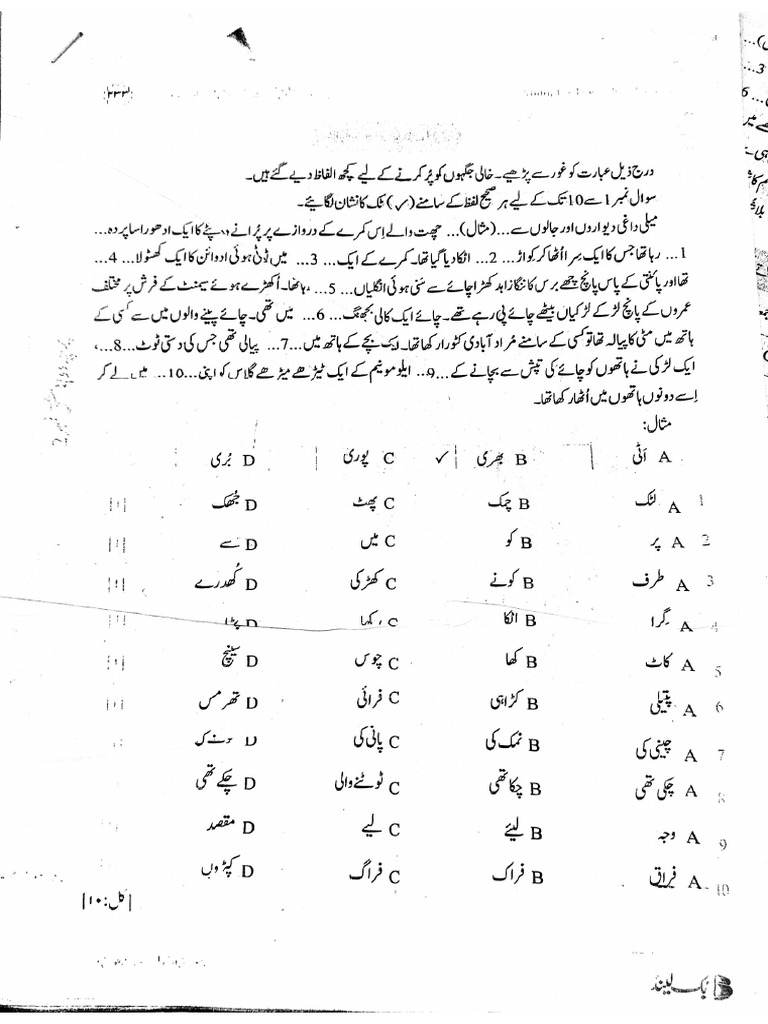 ۲۳۳
درج ذیل عبارت کو غور سے پڑھیے۔ خالی جگہوں کو پُر کرنے کے لیے کچھ الفاظ دیے گئے ہیں۔
سوال نمبر 1 سے 10 تک کے لیے ہر صحیح لفظ کے سامنے (✓) ٹک کا نشان لگائیے۔
میلی داغی دیواروں اور جالوں سے ... (مثال) ... چھت والے اِس کمرے کے دروازے پر پُرانے دوپٹے کا ایک ادھورا سا پردہ ...
1 ... رہا تھا جس کا ایک سِرا اُٹھا کر کواڑ ... 2 ... اٹکا دیا گیا تھا۔ کمرے کے ایک ... 3 ... میں ٹوٹی ہوئی ادوائن کا ایک کھٹولا ... 4 ...
تھا اور پائنتی کے پاس پانچ چھے برس کا ننگا زاہد کھڑا چائے سے سَنی ہوئی انگلیاں ... 5 ... رہا تھا۔ اُکھڑے ہوئے سیمنٹ کے فرش پر مختلف
عمروں کے پانچ لڑکے لڑکیاں بیٹھے چائے پی رہے تھے۔ چائے ایک کالی بھجنگ ... 6 ... میں تھی۔ چائے پینے والوں میں سے کسی کے
ہاتھ میں مٹی کا پیالہ تھا تو کسی کے سامنے مُراد آبادی کٹورا رکھا تھا۔ ایک بچے کے ہاتھ میں ... 7 ... پیالی تھی جس کی دستی ٹوٹ ... 8 ...،
ایک لڑکی نے ہاتھوں کو چائے کی تپش سے بچانے کے ... 9 ... ایلومونیم کے ایک ٹیڑھے میڑھے گلاس کو اپنی ... 10 ... میں لے کر
اِسے دونوں ہاتھوں میں اُٹھا رکھا تھا۔
مثال:
A اَٹی B بھری ✓ C پوری D بُری
1 A لٹک B چمک C پھٹ D جُھک [1]
2 A پر B کو C میں D سے [1]
3 A طرف B کونے C کھڑکی D کُھدرے [1]
4 A گِرا B اٹکا C رکھا D پڑا [1]
5 A کاٹ B کھا C چوس D سینچ [1]
6 A پتیلی B کڑاہی C فرائی D تھرمس [1]
7 A چینی کی B نمک کی C پانی کی D
8 A چکی تھی B چکا تھی C ٹوٹنے والی D چکے تھی
9 A وجہ B لیئے C لیے D مقصد
10 A فِراق B فراک C فراگ D کپڑوں
[کل: ۱۰]
بُک لینڈ